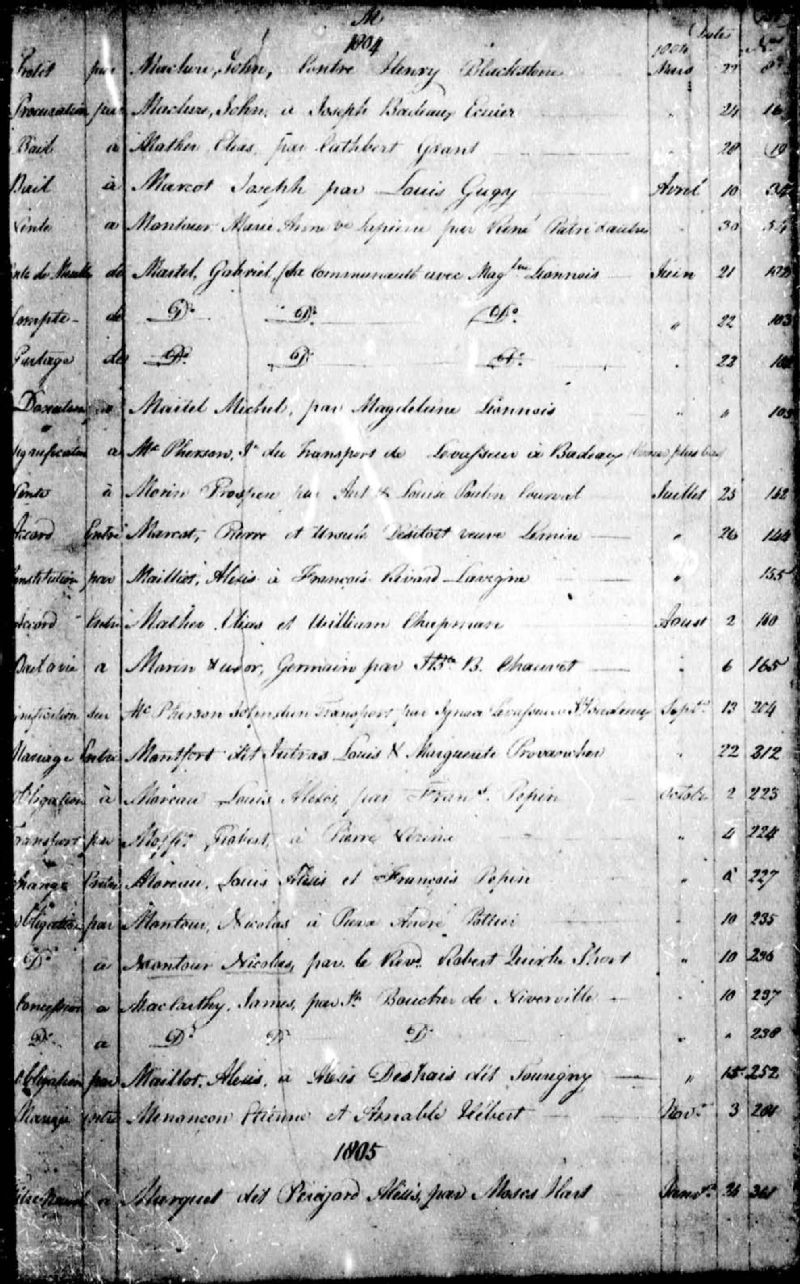 M
1804
1804 Dates Nos
Protêt par Maclure, John, Contre Henry Blackstone Mars 22
Procuration par Maclure, John, à Joseph Badeaux Ecuier " 24 16
Bail à Mather Elias, par Cuthbert Grant " 28 19
Bail à Marcot Joseph par Louis Gugy Avril 10 34
Vente à Montour Marie Anne ve Lapierre par René " 30 54
de Martel, Gabriel, Communauté avec Mag.lne Lionnois Juin 21 102
Compte de Do. Do. Do. " 22 103
Partage des Do. Do. Do. " 22
Donation à Martel Michel, par Magdeleine Lionnois " " 105
Signification à Mc Pherson, Jn. du Transport de Levasseur à Badeaux plus bas
Vente à Morin Prospere par Ant & Louise Poulin Courval Juillet 25 142
Accord Entre Marcot, Pierre et Ursule veuve Lemin " 26 144
Constitution par Maillot, Alexis à François Rivard Lavigne " 155
Accord Entre Mather Elias et William Chapman Aoust 2 160
Bail à vie à Marin & uxor, Germain par J. B. Chauvet " 6 165
Signification sur Mc Pherson Transport par Ignace Levasseur à Badeaux Septr. 13 204
Mariage Entre Montfort dit Jutras Louis & Marguerite " 22 212
Obligation à Moreau Louis Alexis, par Frans. Pepin Octobr. 2 223
Transport par Moffit Robert, à Pierre " 4 224
Echange Entre Moreau, Louis Alexis et François Pepin " 6 227
Obligation par Montour, Nicolas à Pierre André Pottier " 10 235
Do. à Montour Nicolas, par le Revd. Robert Quirke Short " 10 236
Concession à MacCarthy, James, par Jh. Boucher de Niverville " 10 237
Do. à Do. Do. Do. " " 238
Obligation par Maillot, Alexis, à Alexis Deshais dit Tourigny " 15 252
Mariage entre Menançon Etienne et Amable Hébert Novr. 3
1805
Titre Nouvel à Marquet dit Périgord Alexis, par Moses Hart Janvr.